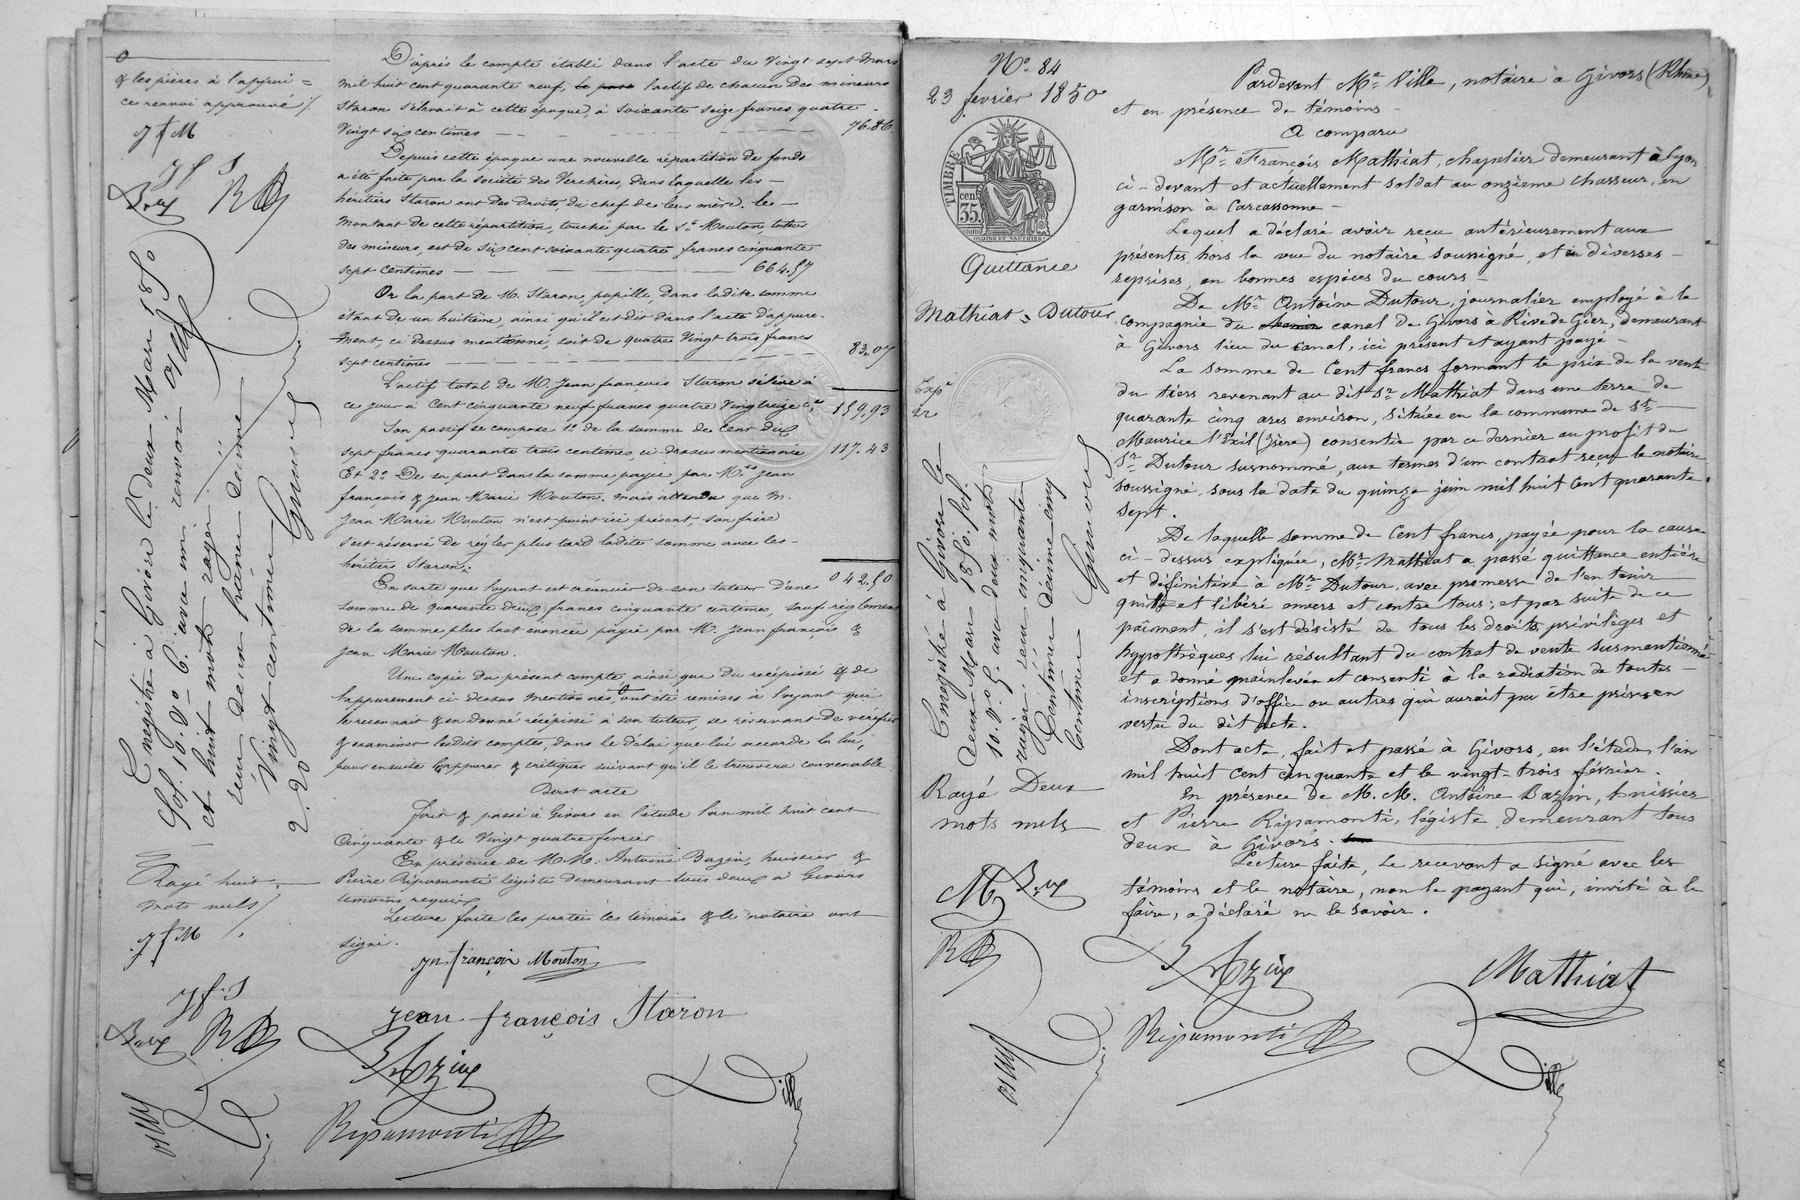 D'après le compte établi dans l'acte du Vingt sept Mars
mil huit cent quarante neuf, l'actif de chacun des mineurs
Staron s'élevait à cette époque, à soixante seize francs quatre
Vingt six centimes — 76.86
Depuis cette époque une nouvelle répartition de fonds
a été faite par la société des Verchères, dans laquelle les
héritiers Staron ont des droits, du chef de leur mère, le
montant de cette répartition, touchée par le Sr. Mouton, tuteur
des mineurs, est de six cent soixante quatre francs cinquante
sept centimes — 664.57
Or la part de M. Staron, pupille, dans ladite somme
étant de un huitième, ainsi qu'il est dit dans l'acte d'appure-
ment, ci dessus mentionné, soit de quatre Vingt trois francs
sept centimes — 83.07
L'actif total de M. Jean françois Staron s'élève à
ce jour à Cent cinquante neuf francs quatre Vingt treize c. 159.93
Son passif se compose 1º de la somme de Cent dix
sept francs quarante trois centimes, ci-dessus mentionnée 117.43
Et 2º De sa part dans la somme payée par M.rs Jean
françois & Jean Marie Mouton, mais attendu que M.
Jean Marie Mouton n'est point ici présent, son frère
s'est réservé de régler plus tard ladite somme avec les
héritiers Staron.
En sorte que l'oyant est créancier de son tuteur d'une 042.50
somme de quarante deux francs cinquante centimes, sauf règlement
de la somme plus haut énoncée payée par M. Jean françois &
Jean Marie Mouton.
Une copie du présent compte, ainsi que du récépissé & de
l'appurement ci dessus mentionnés, ont été remises à l'oyant qui
le reconnait & en donne récépissé à son tuteur, se réservant de vérifier
& examiner lesdits comptes, dans le délai que lui accorde la loi,
pour ensuite l'appurer & critiquer suivant qu'il le trouvera convenable
Dont acte
Fait & passé à Givors en l'étude l'an mil huit cent
Cinquante & le Vingt quatre février
En présence de M.M. Antoine Bazin, huissier &
Pierre Ripamonti légiste demeurant tous deux à Givors
témoins requis
Lecture faite les parties les témoins & le notaire ont
signé.
Jn françois Mouton
jean françois Staron
Bazin
Ripamonti
Ville
& les pièces à l'appui =
ce renvoi approuvé /
JfM
JfS
RB
Enregistré à Givors le deux Mars 1850
fol. 10. Vº C. 6. avec un renvoi
et huit mots rayés.
reçu deux francs décime
Vingt centimes
2.20
Rayé huit
mots nuls /
JfM
JfS
RB
Nº. 84
23 février 1850
TIMBRE
cent
35
Quittance
Mathiat = Dutour
Enregistré à Givors le
deux Mars 1850, fol.
10. Vº C. 5. avec deux mots
rayés. reçu cinquante
Centimes décime cinq
Centimes
Rayé Deux
mots nuls
RB
Pardevant Me. Ville, notaire à Givors (Rhône)
et en présence de témoins
A comparu
Mr. François Mathiat, chapelier demeurant à Lyon
ci-devant et actuellement soldat au onzième chasseur, en
garnison à Carcassonne
Lequel a déclaré avoir reçu antérieurement aux
présentes, hors la vue du notaire soussigné, et à diverses
reprises, en bonnes espèces du cours
De Mr. Antoine Dutour, journalier employé à la
compagnie du canal de Givors à Rive de Gier, demeurant
à Givors lieu du canal, ici présent et ayant payé
La somme de Cent francs formant le prix de la vente
du tiers revenant au dit Sr. Mathiat dans une terre de
quarante cinq ares environ, située en la commune de St.
Maurice l'Exil (Isère) consentie par ce dernier au profit du
Sr. Dutour susnommé, aux termes d'un contrat reçu le notaire
soussigné, sous la date du quinze juin mil huit cent quarante
sept.
De laquelle somme de cent francs, payée pour la cause
ci-dessus expliquée, Mr. Mathiat a passé quittance entière
et définitive à Mr. Dutour, avec promesse de l'en tenir
quitte et libéré envers et contre tous; et par suite de ce
paiment, il s'est désisté de tous les droits, privilèges et
hyppothèques lui résultant du contrat de vente susmentionné
et a donné mainlevée et consenti à la radiation de toutes
inscriptions d'office ou autres qui aurait pu être prises en
vertu du dit acte.
Dont acte, fait et passé à Givors, en l'étude, l'an
mil huit cent cinquante et le vingt-trois février.
En présence de M.M. Antoine Bazin, huissier
et Pierre Ripamonti, légiste, demeurant tous
deux à Givors.
Lecture faite, le recevant a signé avec les
témoins et le notaire, non le payant qui, invité à le
faire, a déclaré ne le savoir.
Bazin
Mathiat
Ripamonti
Ville